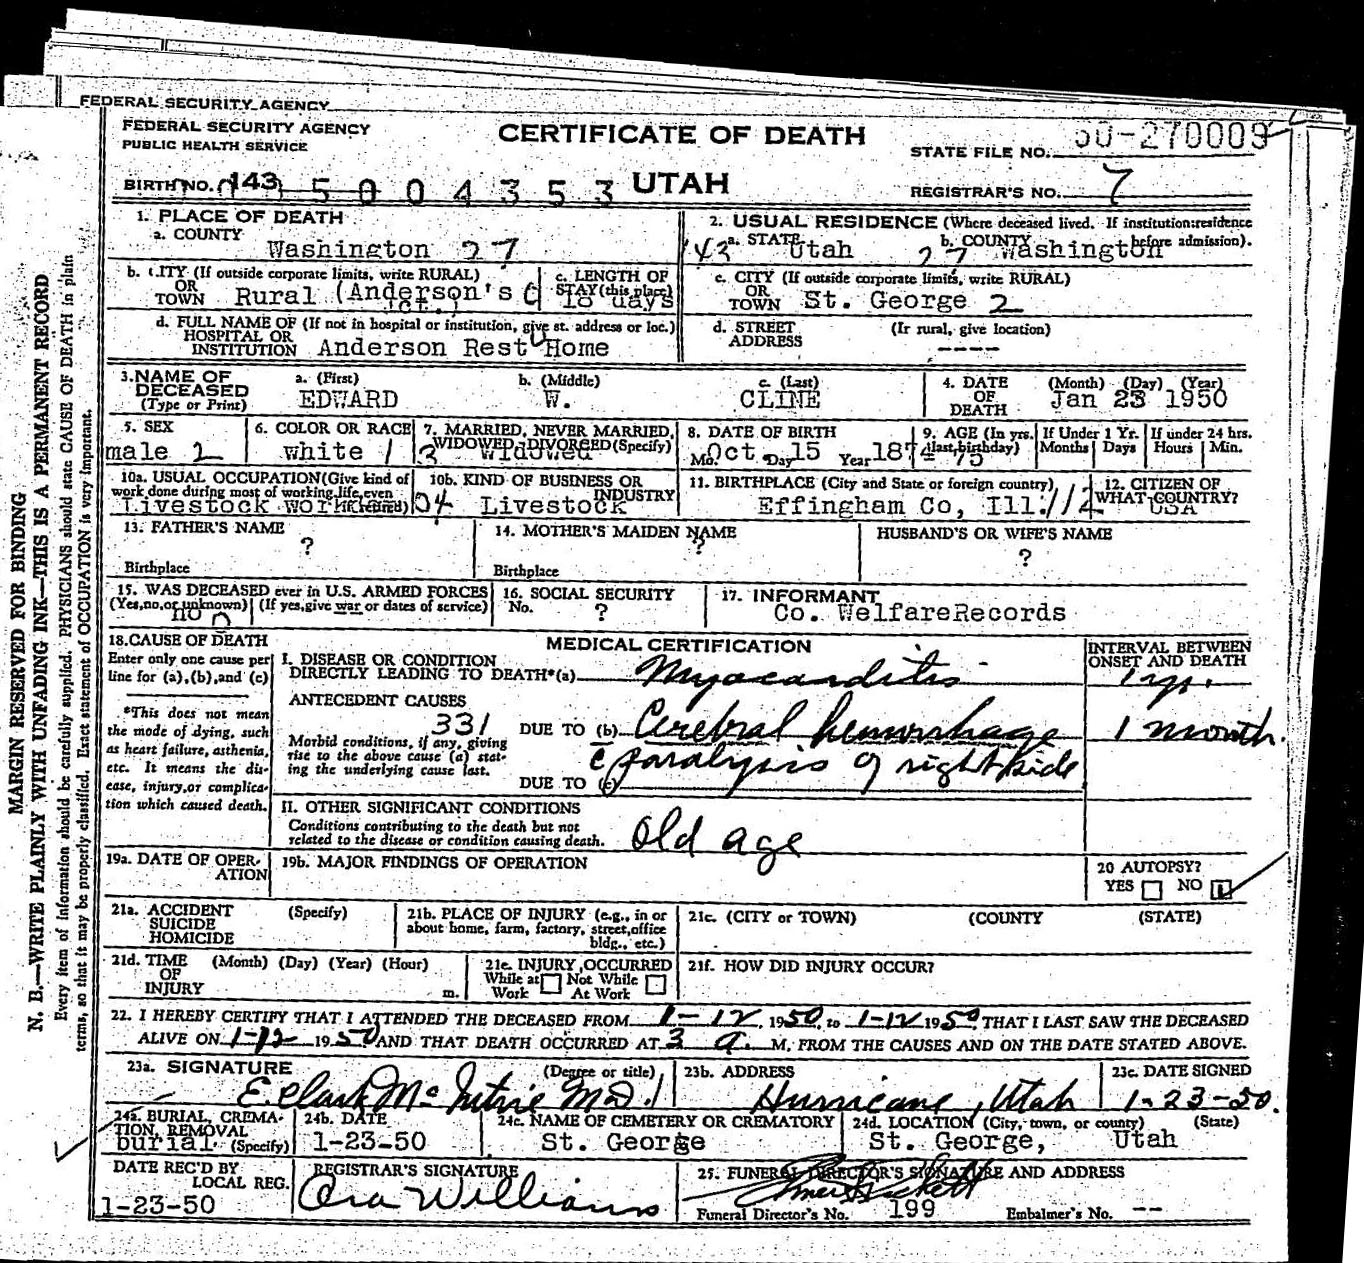 FEDERAL SECURITY AGENCY
FEDERAL SECURITY AGENCY
PUBLIC HEALTH SERVICE
CERTIFICATE OF DEATH
STATE FILE NO. 50-270009
BIRTH NO. 143 5004353 UTAH
REGISTRAR'S NO. 7
1. PLACE OF DEATH
a. COUNTY
Washington 27
2. USUAL RESIDENCE (Where deceased lived. If institution: residence before admission).
143 a. STATE Utah 27 b. COUNTY Washington
b. CITY (If outside corporate limits, write RURAL)
OR TOWN Rural (Anderson's Jct.)
c. LENGTH OF STAY (this place)
18 days
c. CITY (If outside corporate limits, write RURAL)
OR TOWN St. George 2
d. FULL NAME OF (If not in hospital or institution, give st. address or loc.)
HOSPITAL OR
INSTITUTION Anderson Rest Home
d. STREET ADDRESS (Ir rural, give location)
----
3. NAME OF DECEASED
(Type or Print)
a. (First) b. (Middle) c. (Last)
EDWARD W. CLINE
4. DATE OF DEATH (Month) (Day) (Year)
Jan 23 1950
5. SEX
male 2
6. COLOR OR RACE
white 1
7. MARRIED, NEVER MARRIED, WIDOWED, DIVORCED (Specify)
3 widowed
8. DATE OF BIRTH
Mo. Oct Day 15 Year 1874
9. AGE (In yrs. last birthday)
75
If Under 1 Yr.
Months Days
If under 24 hrs.
Hours Min.
10a. USUAL OCCUPATION (Give kind of work done during most of working life, even if retired)
Livestock work
10b. KIND OF BUSINESS OR INDUSTRY
04 Livestock
11. BIRTHPLACE (City and State or foreign country)
Effingham Co, Ill. 112
12. CITIZEN OF WHAT COUNTRY?
USA
13. FATHER'S NAME
?
Birthplace
14. MOTHER'S MAIDEN NAME
?
Birthplace
HUSBAND'S OR WIFE'S NAME
?
15. WAS DECEASED ever in U.S. ARMED FORCES
(Yes, no, or unknown) (If yes, give war or dates of service)
no 0
16. SOCIAL SECURITY
No. ?
17. INFORMANT
Co. WelfareRecords
18. CAUSE OF DEATH
Enter only one cause per line for (a), (b), and (c)
*This does not mean the mode of dying, such as heart failure, asthenia, etc. It means the disease, injury, or complication which caused death.
MEDICAL CERTIFICATION
INTERVAL BETWEEN ONSET AND DEATH
I. DISEASE OR CONDITION
DIRECTLY LEADING TO DEATH*(a) Myocarditis 1 yr.
ANTECEDENT CAUSES
331 DUE TO (b) Cerebral hemorrhage 1 month.
Morbid conditions, if any, giving rise to the above cause (a) stating the underlying cause last.
c̄ paralysis of right side
DUE TO (c)
II. OTHER SIGNIFICANT CONDITIONS
Conditions contributing to the death but not related to the disease or condition causing death.
Old age
19a. DATE OF OPERATION
19b. MAJOR FINDINGS OF OPERATION
20 AUTOPSY?
YES NO
21a. ACCIDENT SUICIDE HOMICIDE (Specify)
21b. PLACE OF INJURY (e.g., in or about home, farm, factory, street, office bldg., etc.)
21c. (CITY or TOWN) (COUNTY) (STATE)
21d. TIME OF INJURY (Month) (Day) (Year) (Hour) m.
21e. INJURY OCCURRED
While at Work Not While At Work
21f. HOW DID INJURY OCCUR?
22. I HEREBY CERTIFY THAT I ATTENDED THE DECEASED FROM 1-12, 1950, to 1-12 1950 THAT I LAST SAW THE DECEASED
ALIVE ON 1-12 1950 AND THAT DEATH OCCURRED AT 3 a. M. FROM THE CAUSES AND ON THE DATE STATED ABOVE.
23a. SIGNATURE (Degree or title)
E. Clark Mc Intire MD.
23b. ADDRESS
Hurricane, Utah
23c. DATE SIGNED
1-23-50.
24a. BURIAL, CREMATION, REMOVAL (Specify)
burial
24b. DATE
1-23-50
24c. NAME OF CEMETERY OR CREMATORY
St. George
24d. LOCATION (City, town, or county) (State)
St. George, Utah
DATE REC'D BY LOCAL REG.
1-23-50
REGISTRAR'S SIGNATURE
Ora Williams
25. FUNERAL DIRECTOR'S SIGNATURE AND ADDRESS
Funeral Director's No. 199 Embalmer's No. --
MARGIN RESERVED FOR BINDING
N. B.—WRITE PLAINLY WITH UNFADING INK—THIS IS A PERMANENT RECORD
Every item of Information should be carefully supplied. PHYSICIANS should state CAUSE OF DEATH in plain
terms, so that it may be properly classified. Exact statement of OCCUPATION is very important.